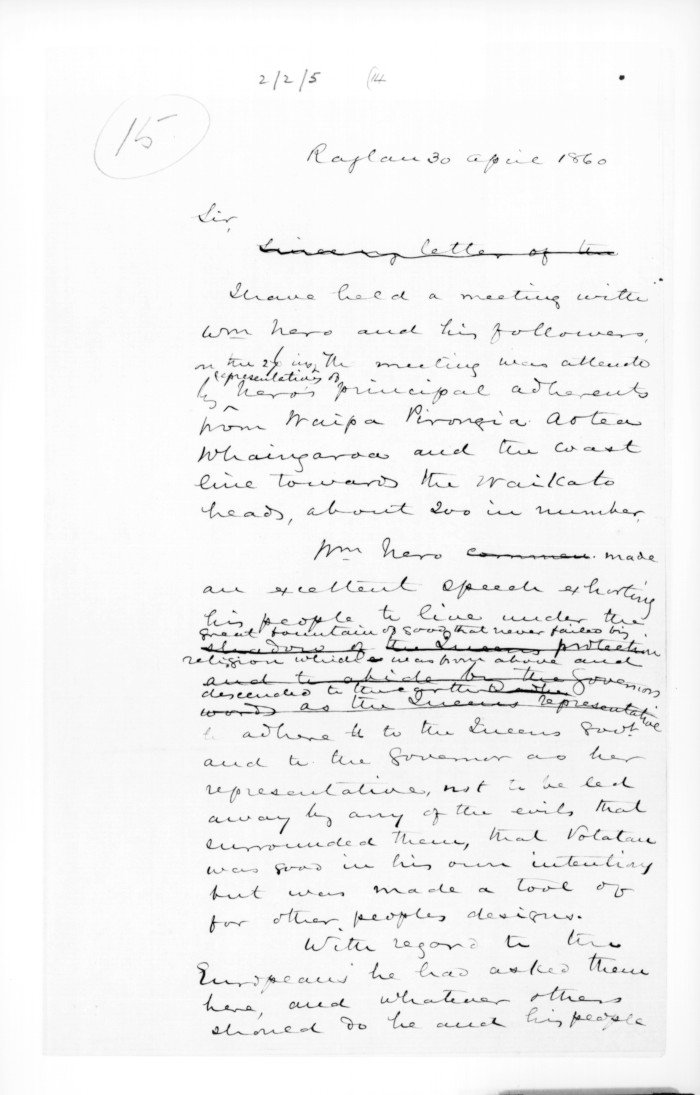 2/2/5 (14
15
Raglan 30 April 1860
Sir,
letter of the
I have held a meeting with
Wm Nero and his followers,
on the inst, The meeting was attended
representatives of
by Nero's principal adherents
from Waipa Pirongia Aotea
Whaingaroa and the coast
line towards the Waikato
heads, about 200 in number.
Wm Nero commen. made
an excellent speech exhorting
his people to live under the
great fountain of good that never failed viz.
shadow of the Queens protection
religion which was from above and
and to abide by the Governors
descended to the earth
words as the Queens representative
to adhere to the Queens Govt
and to the Governor as her
representative, not to be led
away by any of the evils that
surrounded them, that Potatau
was good in his own intentions
but was made a tool of
for other peoples designs.
With regard to the
Europeans he had asked them
here, and whatever others
should do he and his people